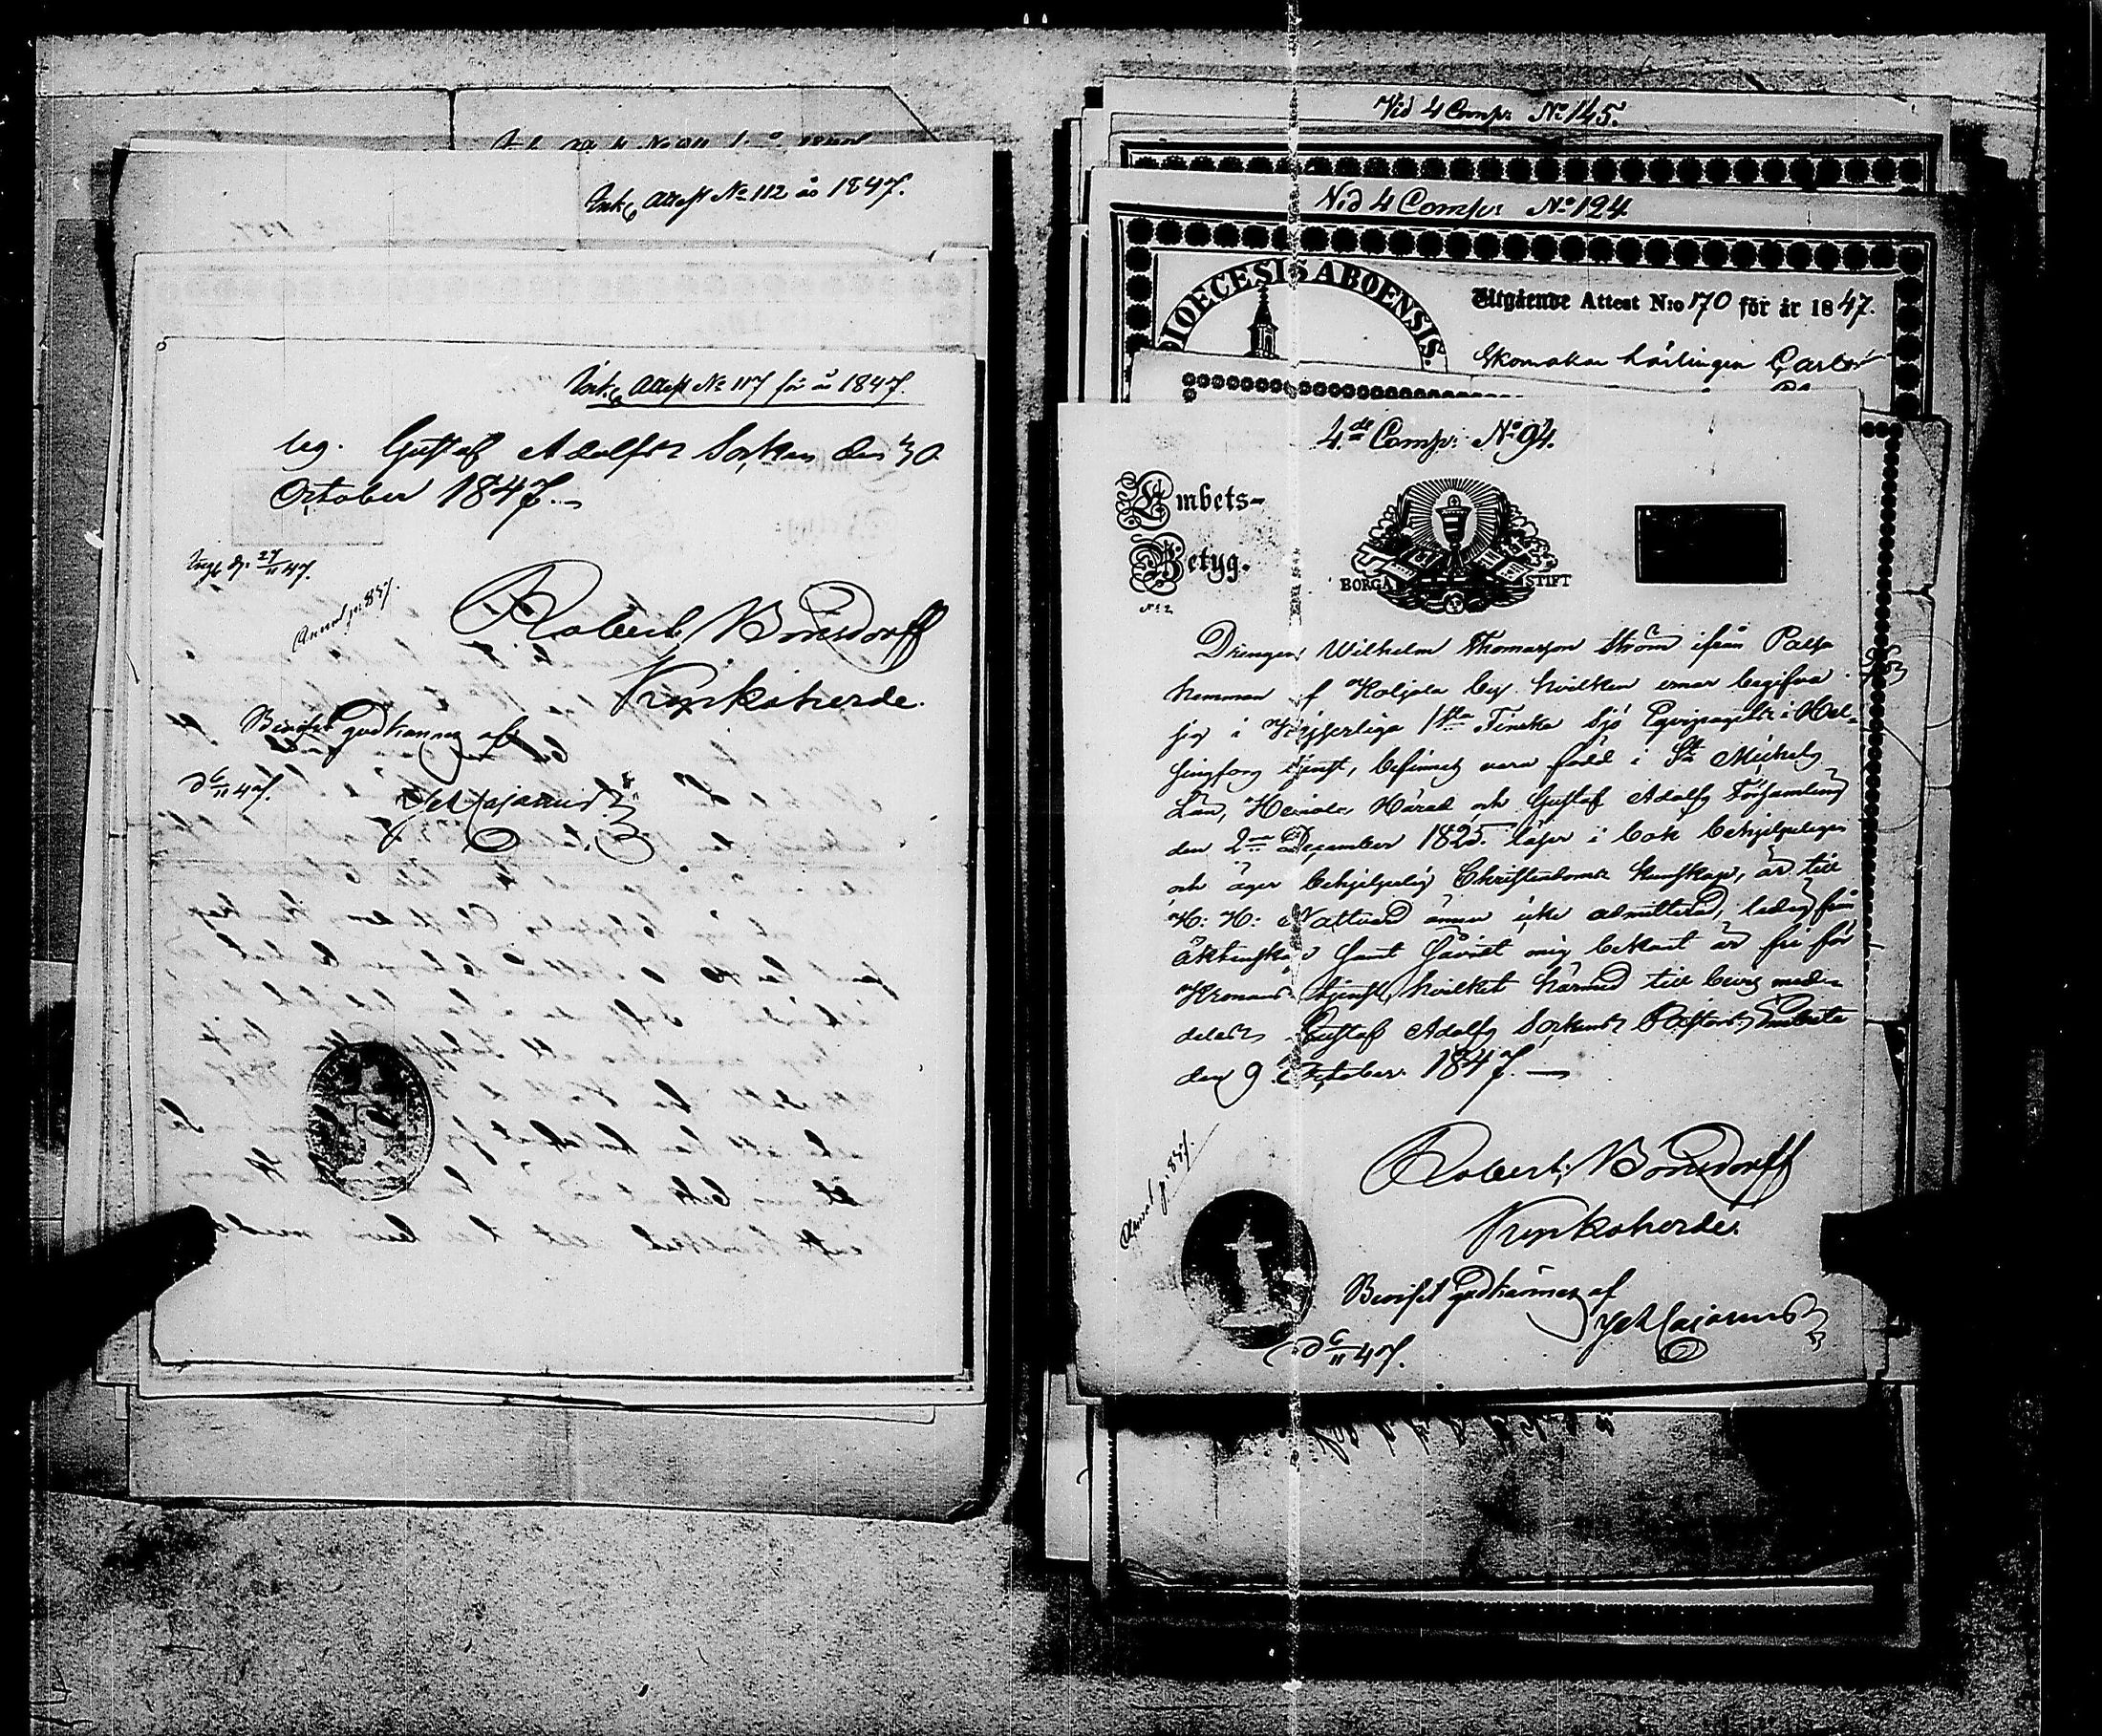 Ink. Attest No 112 år 1847.
Ink. Attest No 117 för år 1847.
Gustaf Adolfs Socken den 30
October 1847.
27/11 47.
Robert Bonsdorff
Kyrkoherde.
Beviset godkännes af
d 6/11 47.
Vid 4 Comp: No 145.
Vid 4 Comp: No 124
DIOECESIS ABOENSIS.
Utgående Attest N:o 170 för år 1847.
Skomakar lärlingen Carl
4de Comp: No 94.
Embets-
Betyg.
BORGÅ STIFT
No 2
Drengen Wilhelm Thomasson Ström ifrån
hemman af Koljala by hvilken ernar begifva
sig i Kejserliga 1sta Finska Sjö Equipaget i Hel-
singfors tjenst, befinnes vara född i St Michels
Län, Heinola Härad och Gustaf Adolfs Församling
den 2dra December 1825. läser i bok behjelpeligen
och äger behjelpelig Christendoms kunskap, är till
H: H: Nattvard ännu icke admitterad, ledig från
äktenskap samt såvidt mig bekant är fri för
Kronans tjenst, hvilket härmed till bevis med-
delas Gustaf Adolfs Sockens Pastors Embete
den 9 October 1847.
Robert Bonsdorff
Kyrkoherde.
Beviset godkännes af
d 6/11 47.